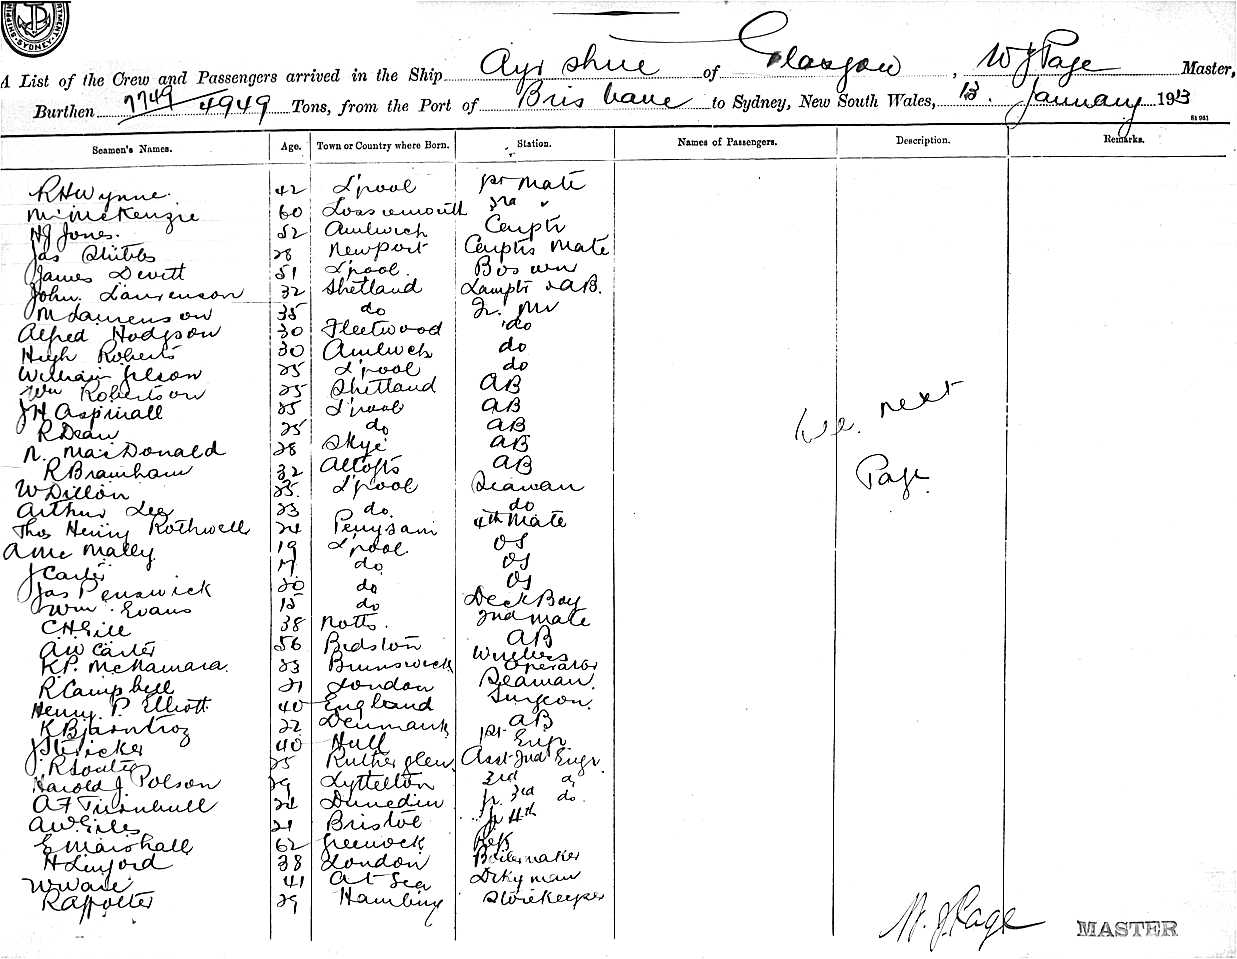 SYDNEY
A List of the Crew and Passengers arrived in the Ship Ayrshire of Glasgow, W J Page Master,
Burthen 7749 4949 Tons, from the Port of Brisbane to Sydney, New South Wales, 13. January 1913
Seamen's Names. Age. Town or Country where Born. Station. Names of Passengers. Description. Remarks.
R H Wynne. 42 L'pool 1st Mate
McKenzie 60 Lossiemouth 3rd "
H J Jones. 52 Amlwich Carptr
Jas Stibbs 28 Newport Carptrs Mate
James Devitt 51 L'pool. Bosun
John Laurenson 32 Shetland Lamptr & AB.
M Laurenson 35 do
Alfred Hodgson 30 Fleetwood do
Hugh Roberts 30 Amlwch do
William 25 L'pool do
Wm Robertson 25 Shetland AB
J H Aspinall 25 L'pool AB
R Dean 25 do AB
N. MacDonald 28 Skye AB
R Bramham 32 Altofts AB
W Dillon 25. L'pool Seaman
Arthur Lee 23 do. do
Thos Henry Rothwell 24 4th Mate
A Mc Mally 19 L'pool OS
J Carter 17 do. OS
Jas Penswick 20 do OS
Wm. Evans 15 do Deck Boy
C. H. Gill 38 Notts. 2nd Mate
A W Carter 56 Bidston AB
K P. McNamara. 23 Brunswick Wireless Operator
R Campbell 21 London Seaman.
Henry P. Elliott 40 England Surgeon.
K 22 Denmark AB
40 Hull 1st Engr.
R 25 Rutherglen Asst 2nd Engr.
Harold J Polson 29 Lyttelton 3rd do
A F Turnbull 24 Dunedin Jr. 3rd do.
A W. Giles 21 Bristol Jr 4th
E Marshall 62 Greenock
H Linford 38 London Boilermaker
W Ware 41 At Sea Dkyman
R A Potter 29 Storekeeper
See next
Page.
W. J. Page MASTER